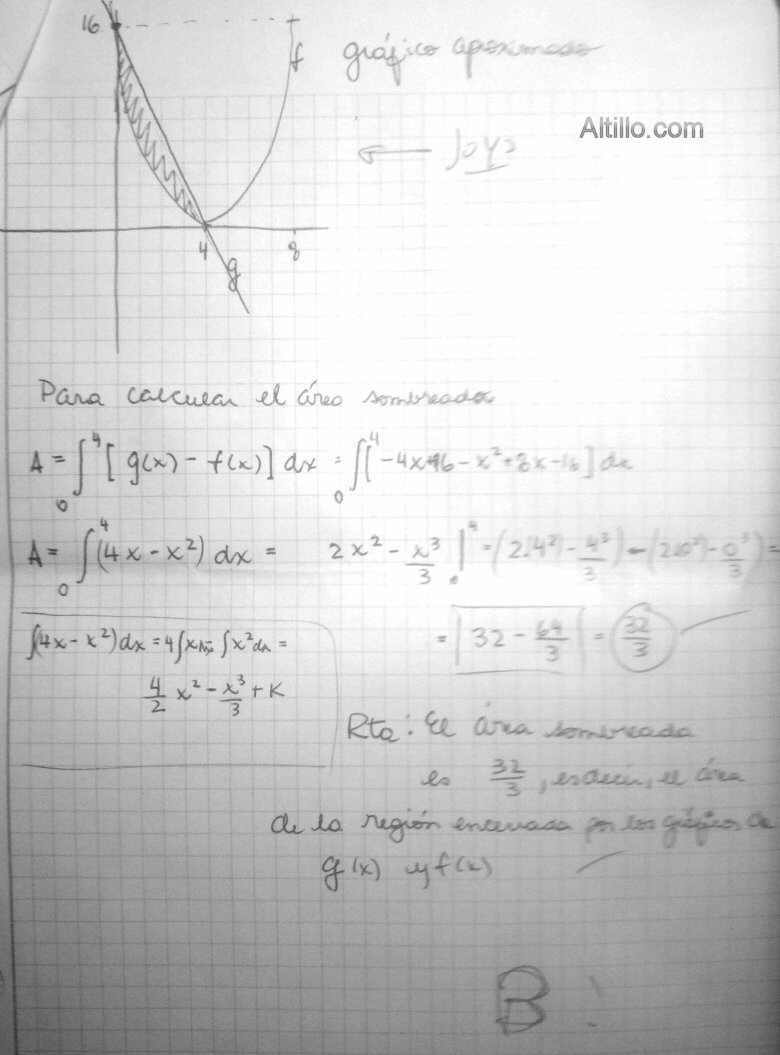 16
f
gráfico aproximado
Altillo.com
← Joya
4
8
g
Para calcular el área sombreada
A = ∫₀⁴ [g(x) - f(x)] dx = ∫₀⁴ [-4x+16 - x² + 8x - 16] dx
A = ∫₀⁴ (4x - x²) dx = 2x² - x³/3 |₀⁴ = (2.(4²) - 4³/3) - (2.0² - 0³/3) =
= |32 - 64/3| = 32/3
∫(4x - x²) dx = 4∫x dx - ∫x² dx =
4/2 x² - x³/3 + K
Rta: El área sombreada
es 32/3, es decir, el área
de la región encerrada por los gráficos de
g(x) y f(x)
B